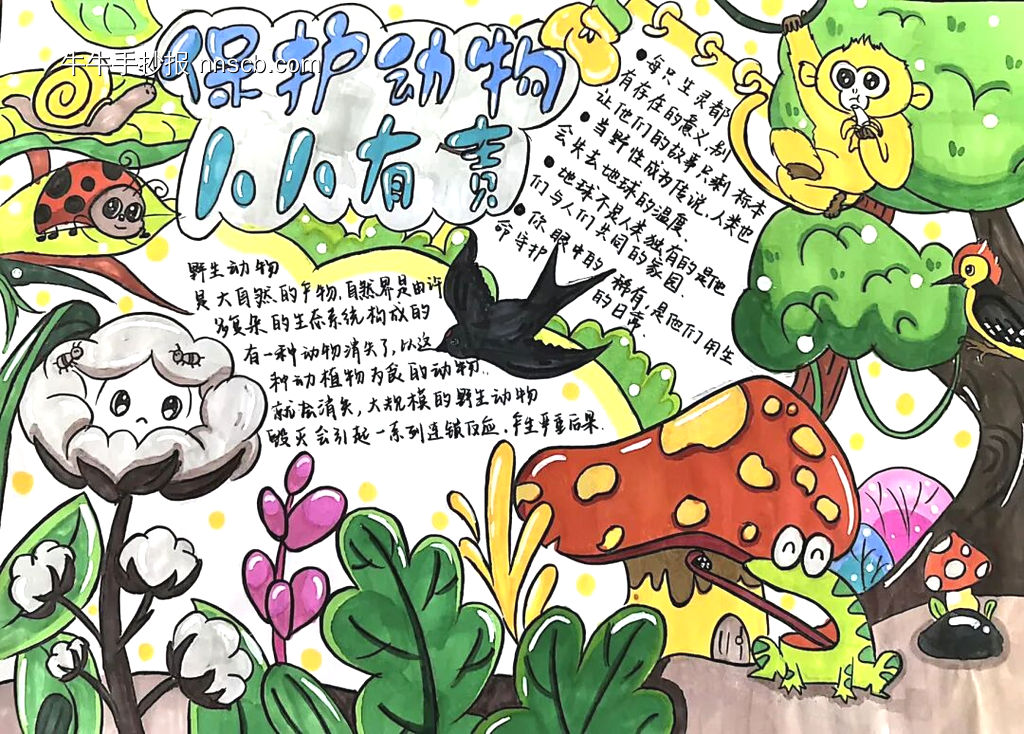 牛牛手抄报 nnscb.com
保护动物
人人有责
野生动物
是大自然的产物,自然界是由许
多复杂的生态系统构成的
有一种动物消失了,以这
种动植物为食的动物..
就会消失,大规模的野生动物
毁灭会引起一系列连锁反应,产生严重后果.
•每只生灵都
有存在的意义,别
让他们的故事只剩标本
•当野性成为传说,人类也
会失去地球的温度.
•地球不是人类独有的是他
们与人们共同的家园.
•你眼中的稀有,是他们用生
命守护的日常